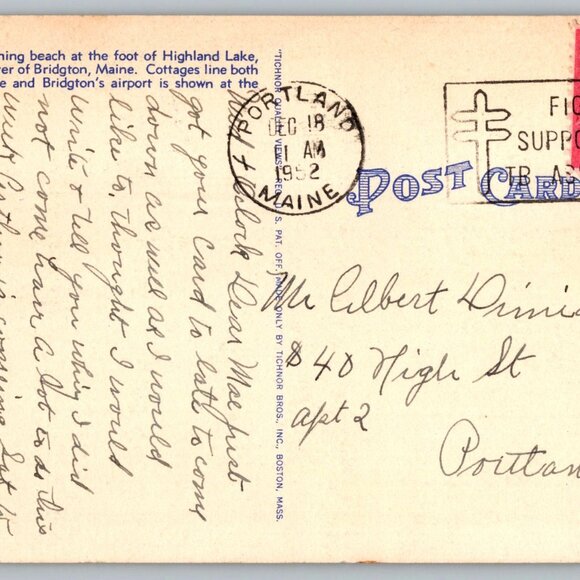 ning beach at the foot of Highland Lake,
er of Bridgton, Maine. Cottages line both
e and Bridgton's airport is shown at the
"TICHNOR QUALITY VIEWS," REG. U. S. PAT. OFF. MADE ONLY BY TICHNOR BROS., INC., BOSTON, MASS.
PORTLAND
DEC 18
1 AM
1952
MAINE
FIG
SUPPO
TB AS
POST CARD
Dear Mae Just
got your Card to late to come
down as well as I would
like to, thought I would
write & tell you why I did
not come have a lot to do this
week
is coming Sat
Mr Albert Dimi
840 High St
apt 2
Portlan